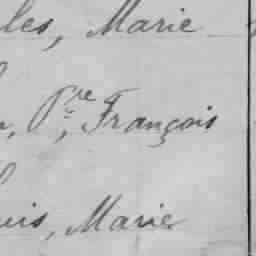 les, Marie
, Pre, François
uis, Marie